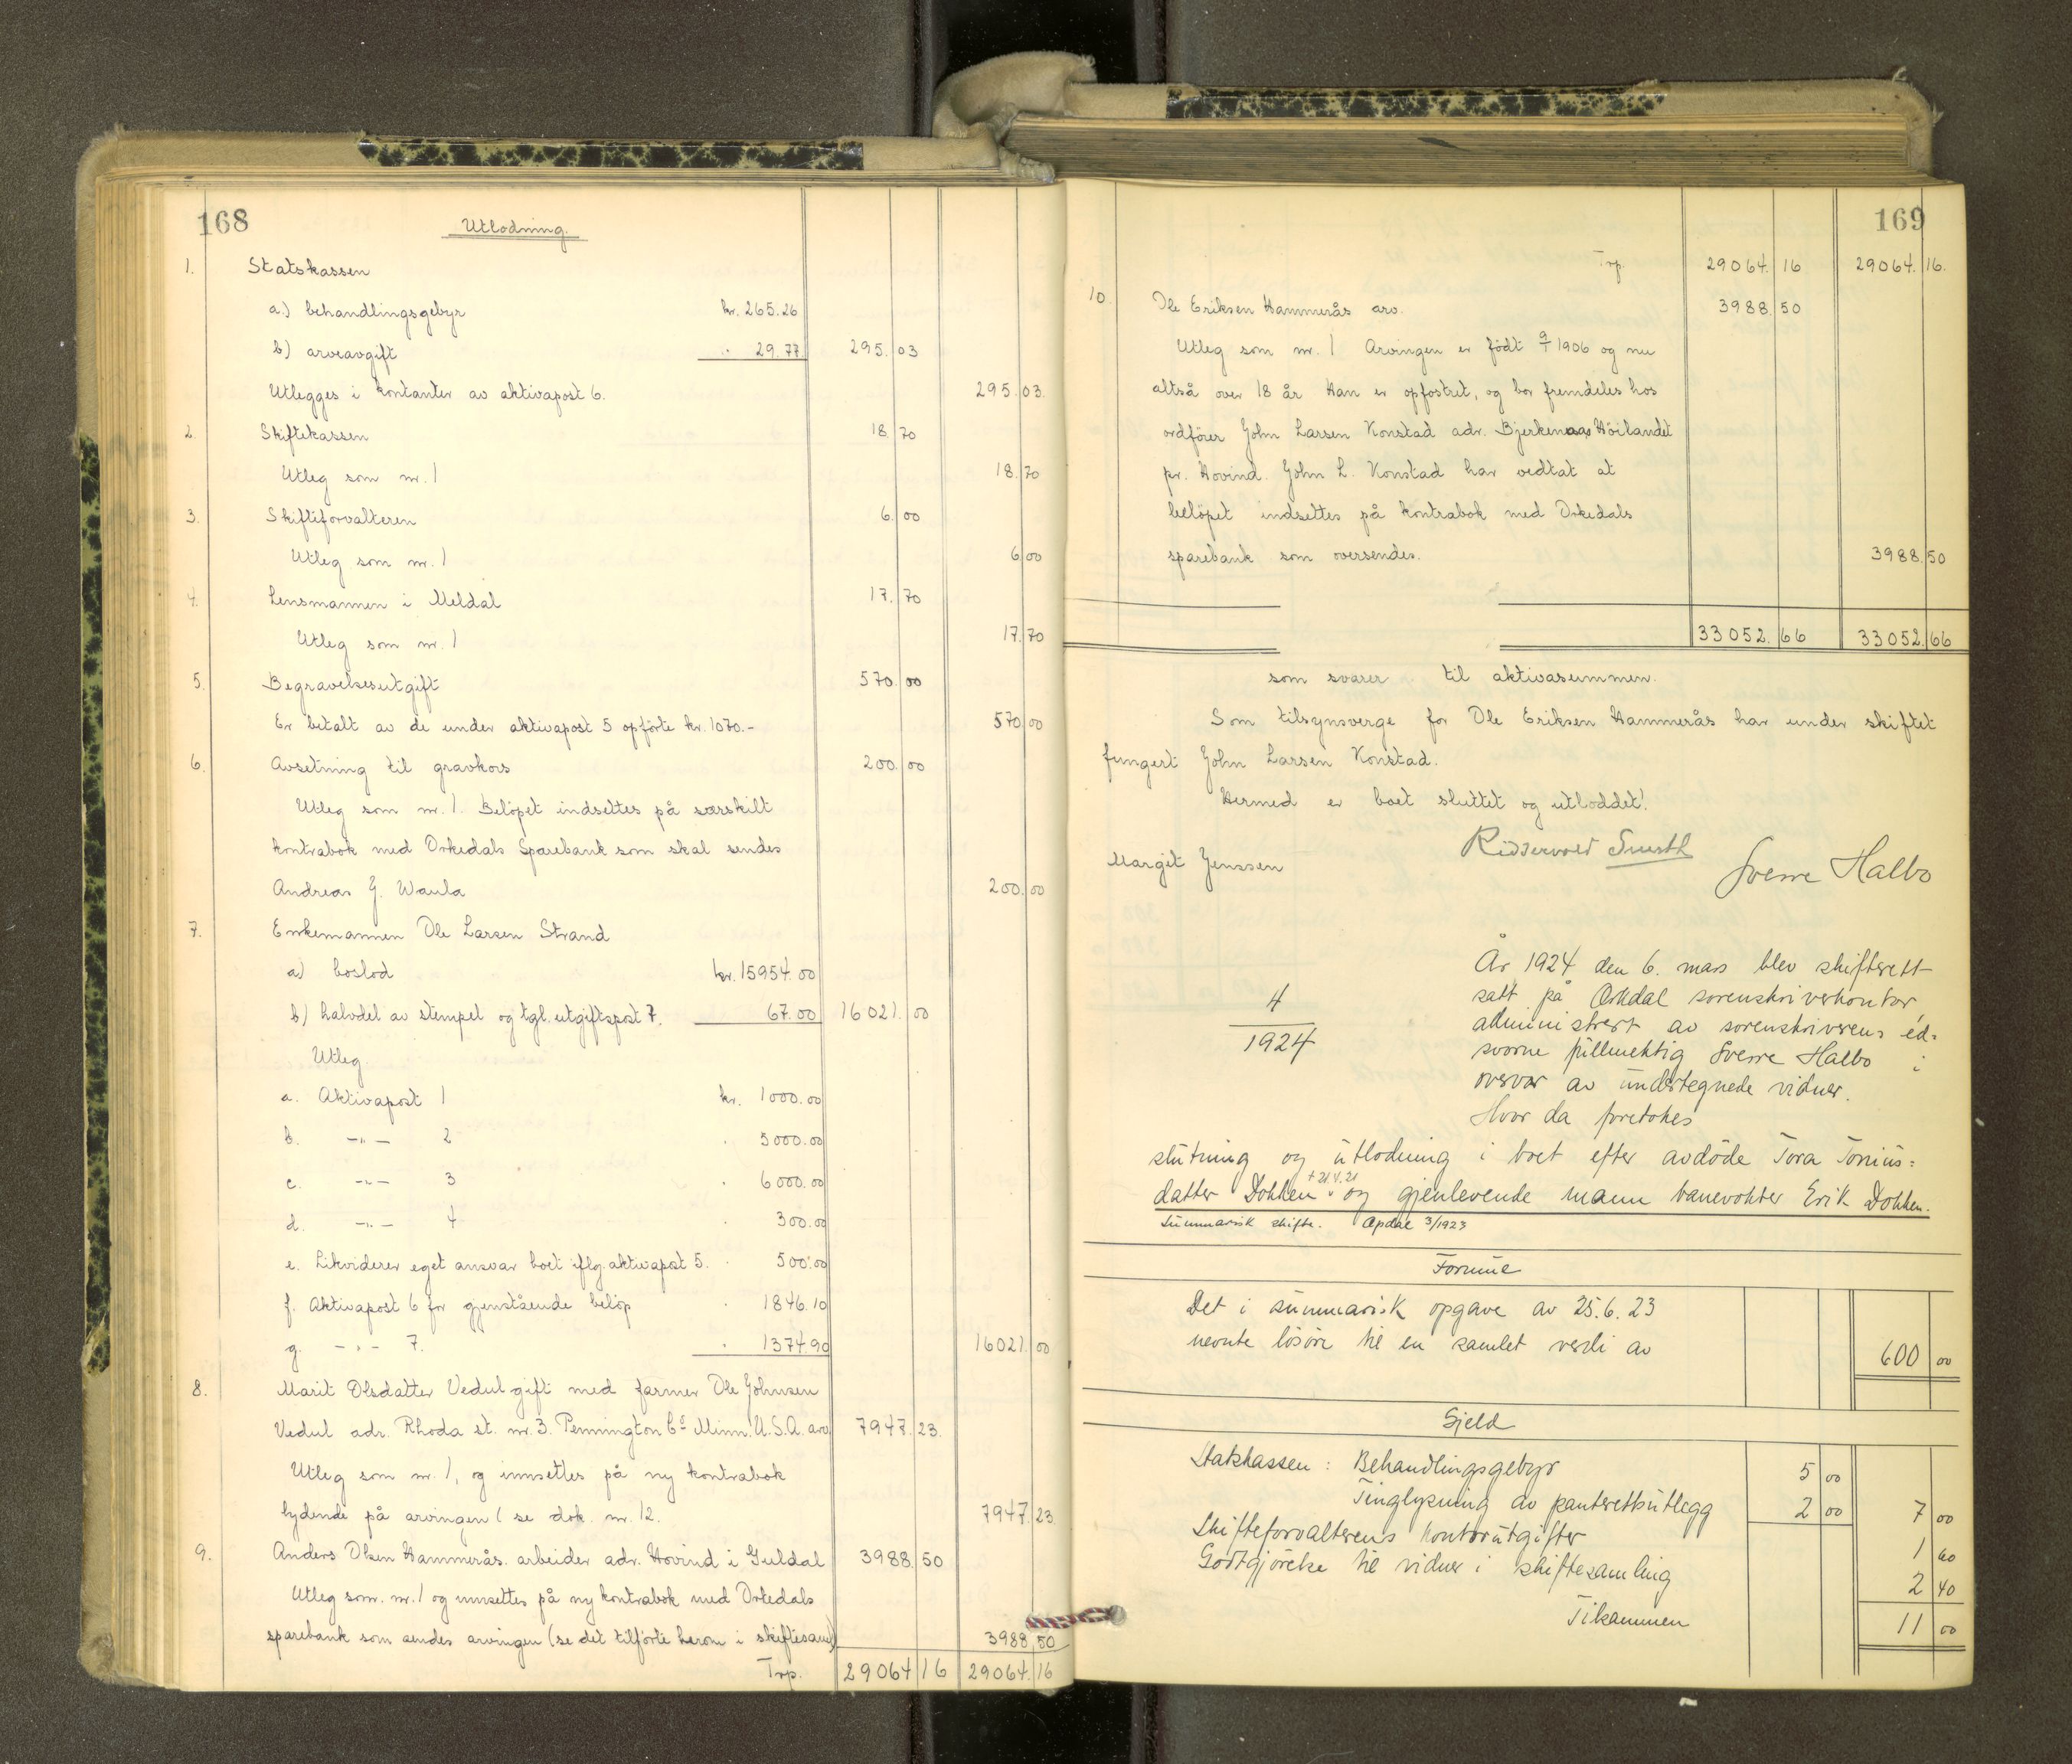 168
Utlodning.
1. Statskassen
a.) behandlingsgebyr kr. 265.26
b) arveavgift " 29.77 295.03
Utlegges i kontanter av aktivapost 6. 295.03.
2. Skiftekassen 18.70
Utleg som nr. 1 18.70
3. Skifteforvalteren 6.00
Utleg som nr. 1 6.00
4. Lensmannen i Meldal 17.70
Utleg som nr. 1 17.70
5. Begravelsesutgift 570.00
Er betalt av de under aktivapost 5 opførte kr. 1070.- 570.00
6. Avsetning til gravkors 200.00
Utleg som nr. 1. Beløpet indsettes på særskilt
kontrabok med Orkedals Sparebank som skal sendes
Andreas J. Waula 200.00
7. Enkemannen Ole Larsen Strand
a) boslod kr. 15954.00
b) halvdel av stempel og tgl. utgiftspost 7. 67.00 16021.00
Utleg.
a. Aktivapost 1 kr. 1000.00
b. -"- 2 . 5000.00
c. -"- 3 . 6000.00
d. -"- 4 . 300.00
e. Likviderer eget ansvar boet iflg. aktivapost 5. . 500.00
f. Aktivapost 6 for gjenstående beløp . 1846.10
g. -"- 7. . 1374.90 16021.00
8. Marit Olsdatter Vedul gift med farmer Ole Johnsen
Vedul adr. Rhoda st. nr. 3. Pennington Co Minn. U.S.A. arv. 7947.23.
Utleg som nr. 1, og innsettes på ny kontrabok
lydende på arvingen (se dok. nr. 12. 7947.23
9. Anders Olsen Hammerås. arbeider adr. Hovind i Guldal 3988.50
Utleg som. nr. 1 og innsettes på ny kontrabok med Orkedals
sparebank som sendes arvingen (se det tilførte herom i skiftesaml) 3988.50
Trp. 29064.16 29064.16
169
Trp. 29064.16 29064.16.
10. Ole Eriksen Hammerås arv. 3988.50
Utleg som nr. 1 Arvingen er født 9/1 1906 og nu
altså over 18 år Han er opfostret, og bor fremdeles hos
ordfører John Larsen Konstad adr. Bjerkenaas Høilandet
pr. Hovind. John L. Konstad har vedtat at
beløpet indsettes på kontrabok med Orkedals
sparebank som oversendes. 3988.50
33052.66 33052.66
som svarer til aktivasummen.
Som tilsynsverge for Ole Eriksen Hammerås har under skiftet
fungert John Larsen Konstad.
Hermed er boet sluttet og utloddet.
Margit Jenssen
Sverre Halbo
4
1924
År 1924 den 6. mars blev skifterett
satt på Orkdal sorenskriverkontor
administrert av sorenskriverens ed-
svorne fullmektig Sverre Halbo i
overvær av undertegnede vidner.
Hvor da foretokes
slutning og utlodning i boet efter avdøde Tora Tørrius=
datter Dokken + 21.V.21 og gjenlevende mann banevokter Erik Dokken.
Summarisk skifte. Opdal 3/1923
Formue
Det i summarisk opgave av 25.6.23
nevnte løsøre til en samlet verdi av 600 00
Gjeld
Statskassen: Behandlingsgebyr 5 00
Tinglysning av panterettsutlegg 2 00 7 00
Skifteforvalterens kontorutgifter 1 60
Godtgjørelse til vidner i skiftesamling 2 40
Tilsammen 11 00